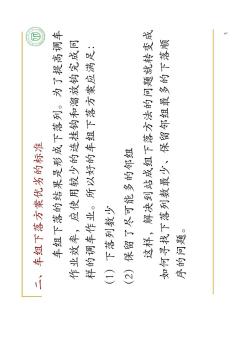 二、车组下落方案优劣的标准
车组下落的结果是形成下落列。为了提高调车
作业效率，应使用较少的连挂钩和溜放钩完成同
样的调车作业。所以好的车组下落方案应满足：
(1) 下落列数少
(2) 保留了尽可能多的邻组
这样，解决到站成组下落方法的问题就转变成
如何寻找下落列数最少、保留邻组最多的下落顺
序的问题。